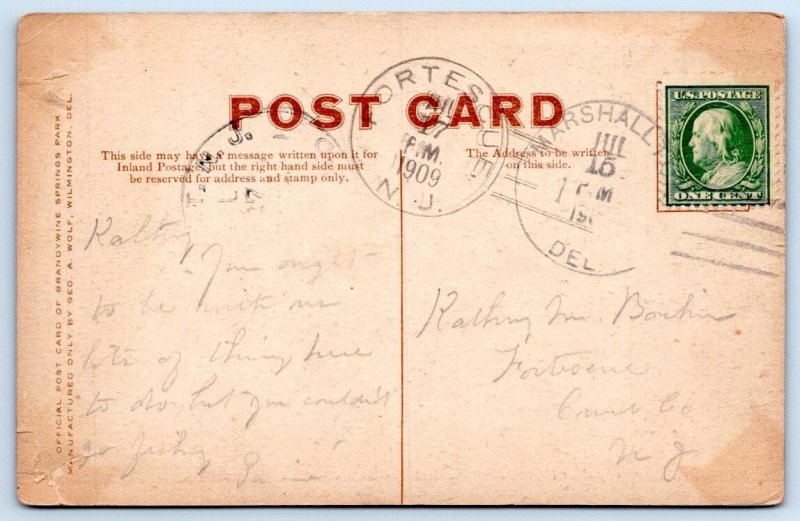 POST CARD
This side may have a message written upon it for
Inland Postage, but the right hand side must
be reserved for address and stamp only.
The Address to be written
on this side.
OFFICIAL POST CARD OF BRANDYWINE SPRINGS PARK
MANUFACTURED ONLY BY GEO. A. WOLF, WILMINGTON, DEL.
FORTESCUE
JUL
17
P.M.
1909
N.J.
MARSHALL
JUL
15
1
M
DEL.
U.S. POSTAGE
ONE CENT
Kathryn
You ought
to be with us
lots of things here
to do, but you couldn't
go fishing
Kathryn M.
Fortescue
Cumb Co
N J